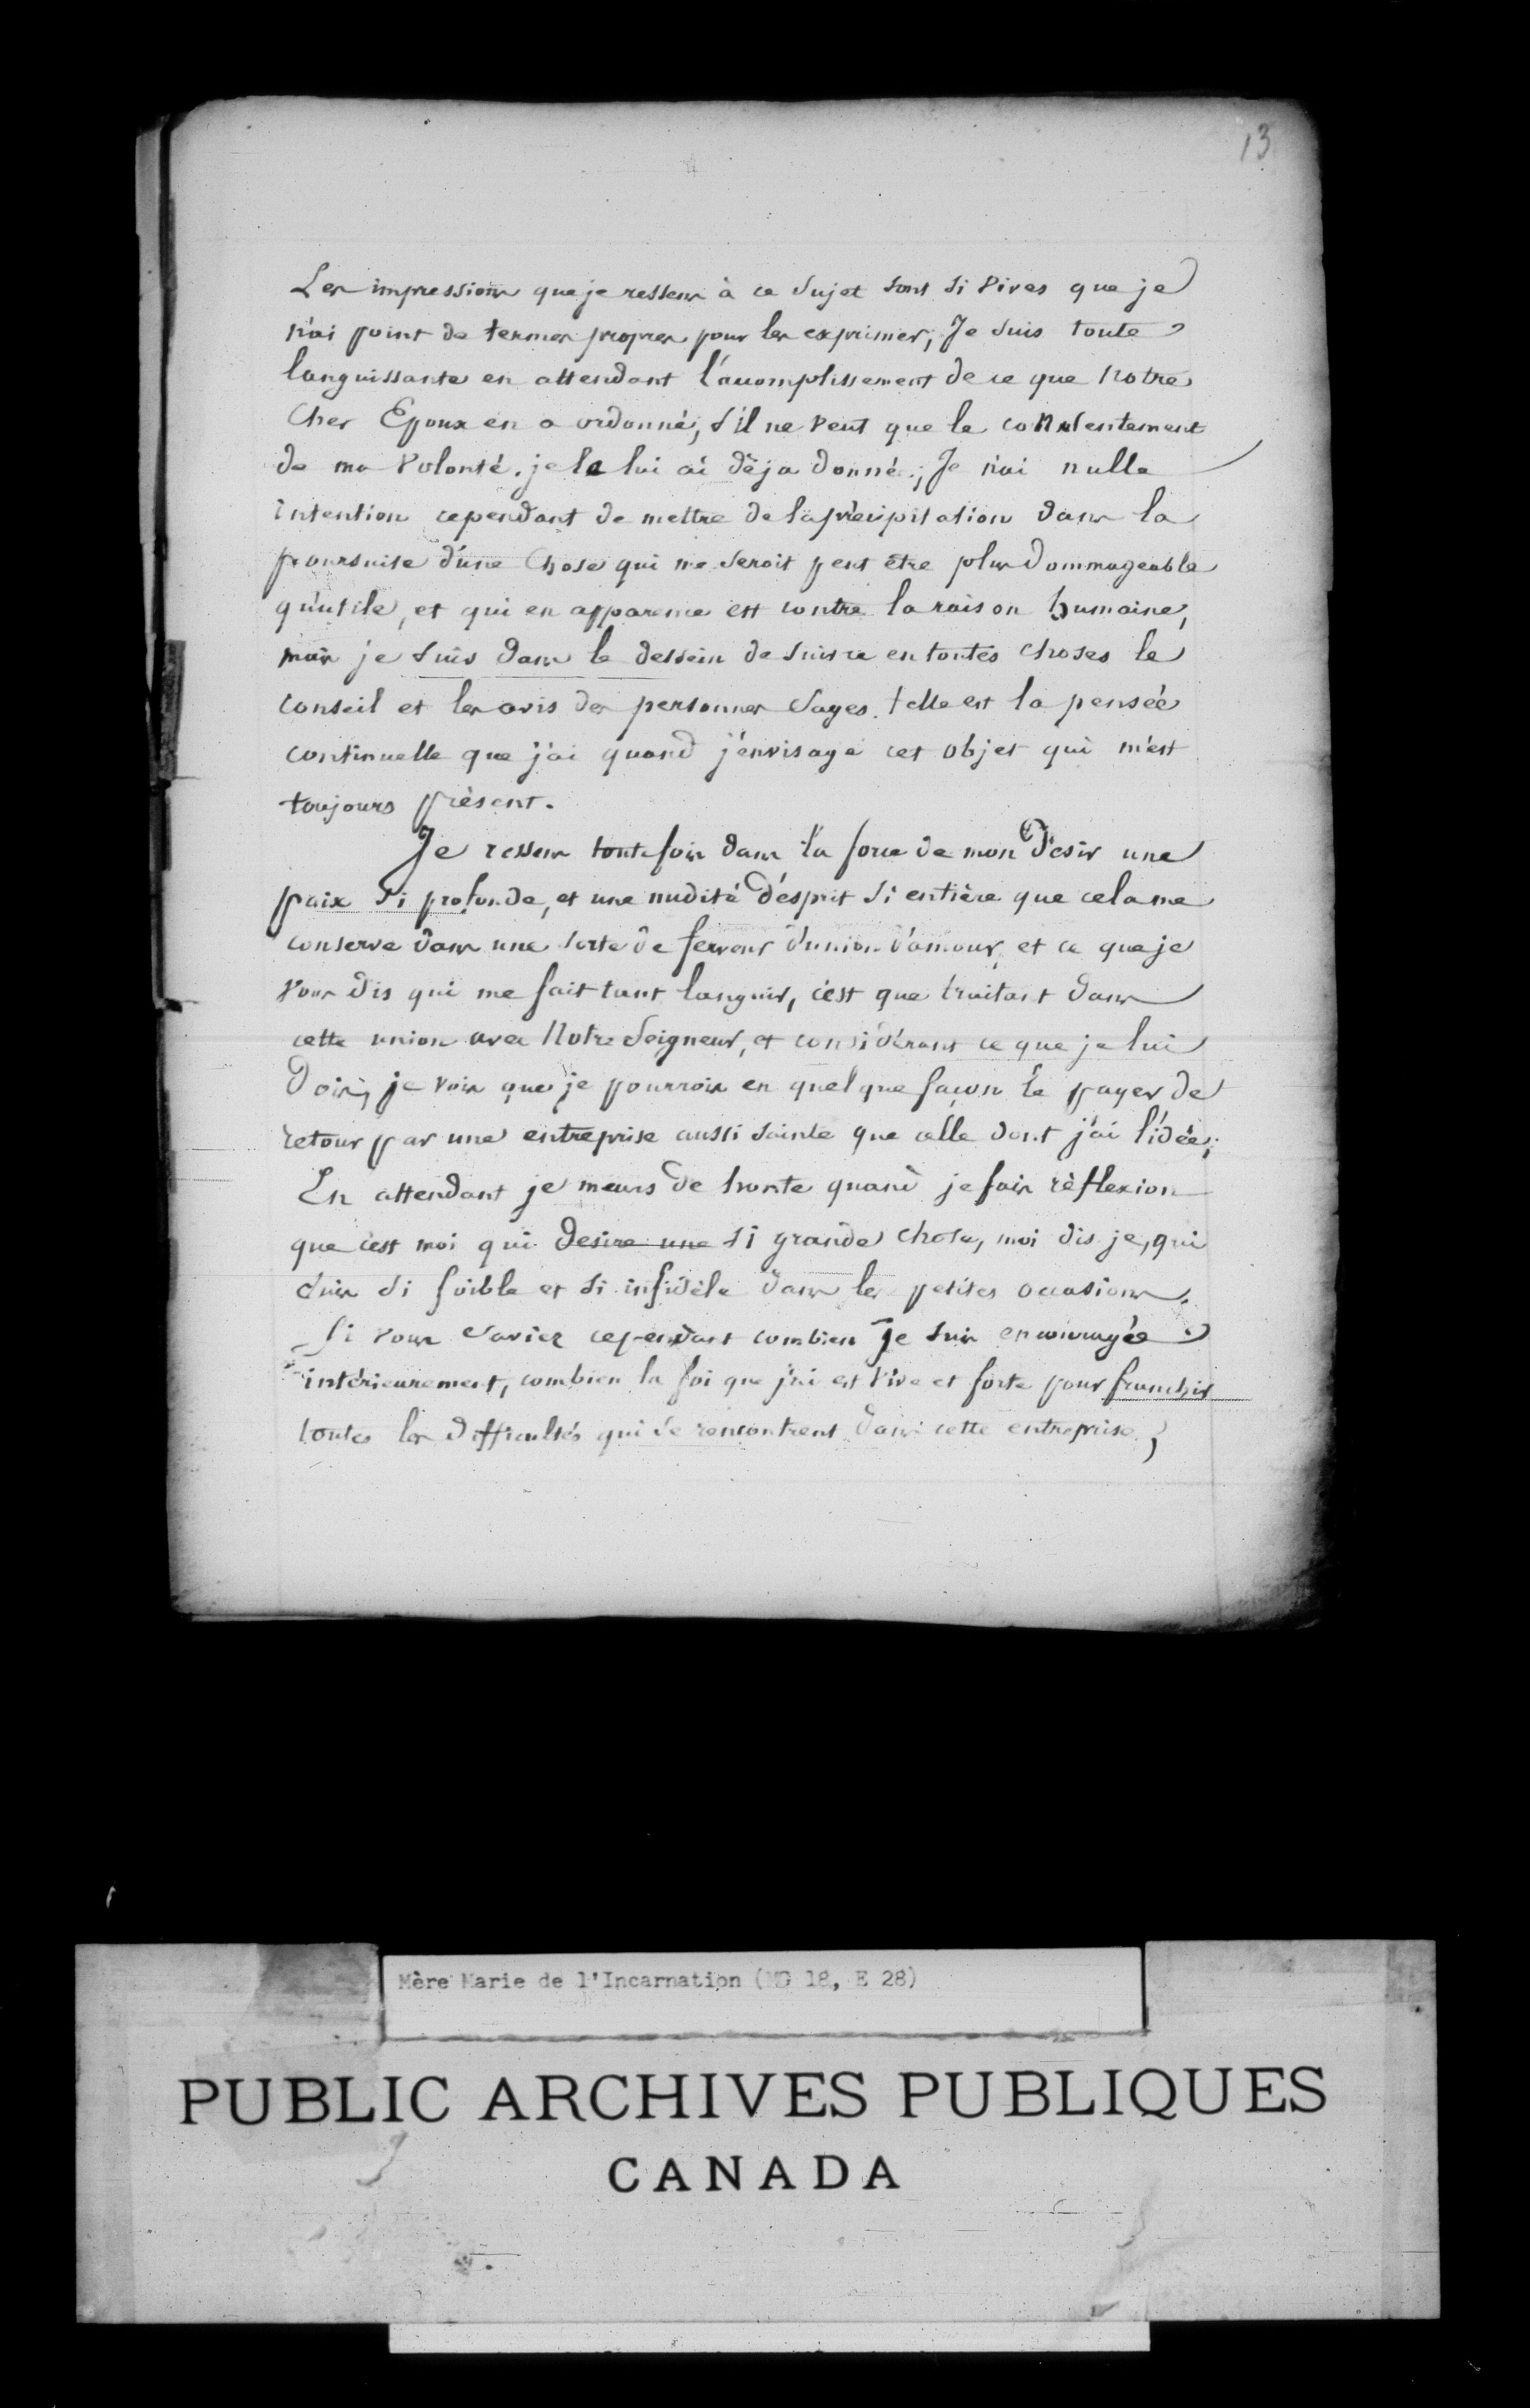 13
Les impressions que je ressens à ce sujet sont si vives que je
n'ai point de termes propres pour les exprimer; Je suis toute
languissante en attendant l'accomplissement de ce que Notre
Cher Epoux en a ordonné, s'il ne veut que le consentement
de ma volonté. je le lui ai dèja donné; Je n'ai nulle
intention cependant de mettre de la prècipitation dans la
poursuite d'une Chose qui me seroit peut être plus dommageable
qu'utile, et qui en apparence est contre la raison humaine,
mais je suis dans le dessein de suivre en toutes choses le
conseil et les avis des personnes sages. telle est la pensée
continuelle que j'ai quand j'envisage cet objet qui m'est
toujours prèsent.
Je ressens toutefois dans la force de mon Desir une
paix si profonde, et une nudité d'ésprit si entière que cela me
conserve dans une sorte de ferveur d'union d'amour, et ce que je
vous dis qui me fait tant languir, c'est que traitant dans
cette union avec Notre Seigneur, et considérant ce que je lui
Dois, je vois que je pourrois en quelque façon le payer de
retour par une entreprise aussi sainte que celle dont j'ai l'idée;
En attendant je meurs de honte quand je fais rèflexion
que c'est moi qui desire une si grande chose, moi dis je, qui
suis si foible et si infidèle dans les petites occasions.
Si vous saviez cependant combien Je suis encouragée
intérieurement, combien la foi que j'ai est vive et forte pour franchir
toutes les difficultés qui se rencontrent dans cette entreprise;
Mère Marie de l'Incarnation (MG 18, E 28)
PUBLIC ARCHIVES PUBLIQUES
CANADA